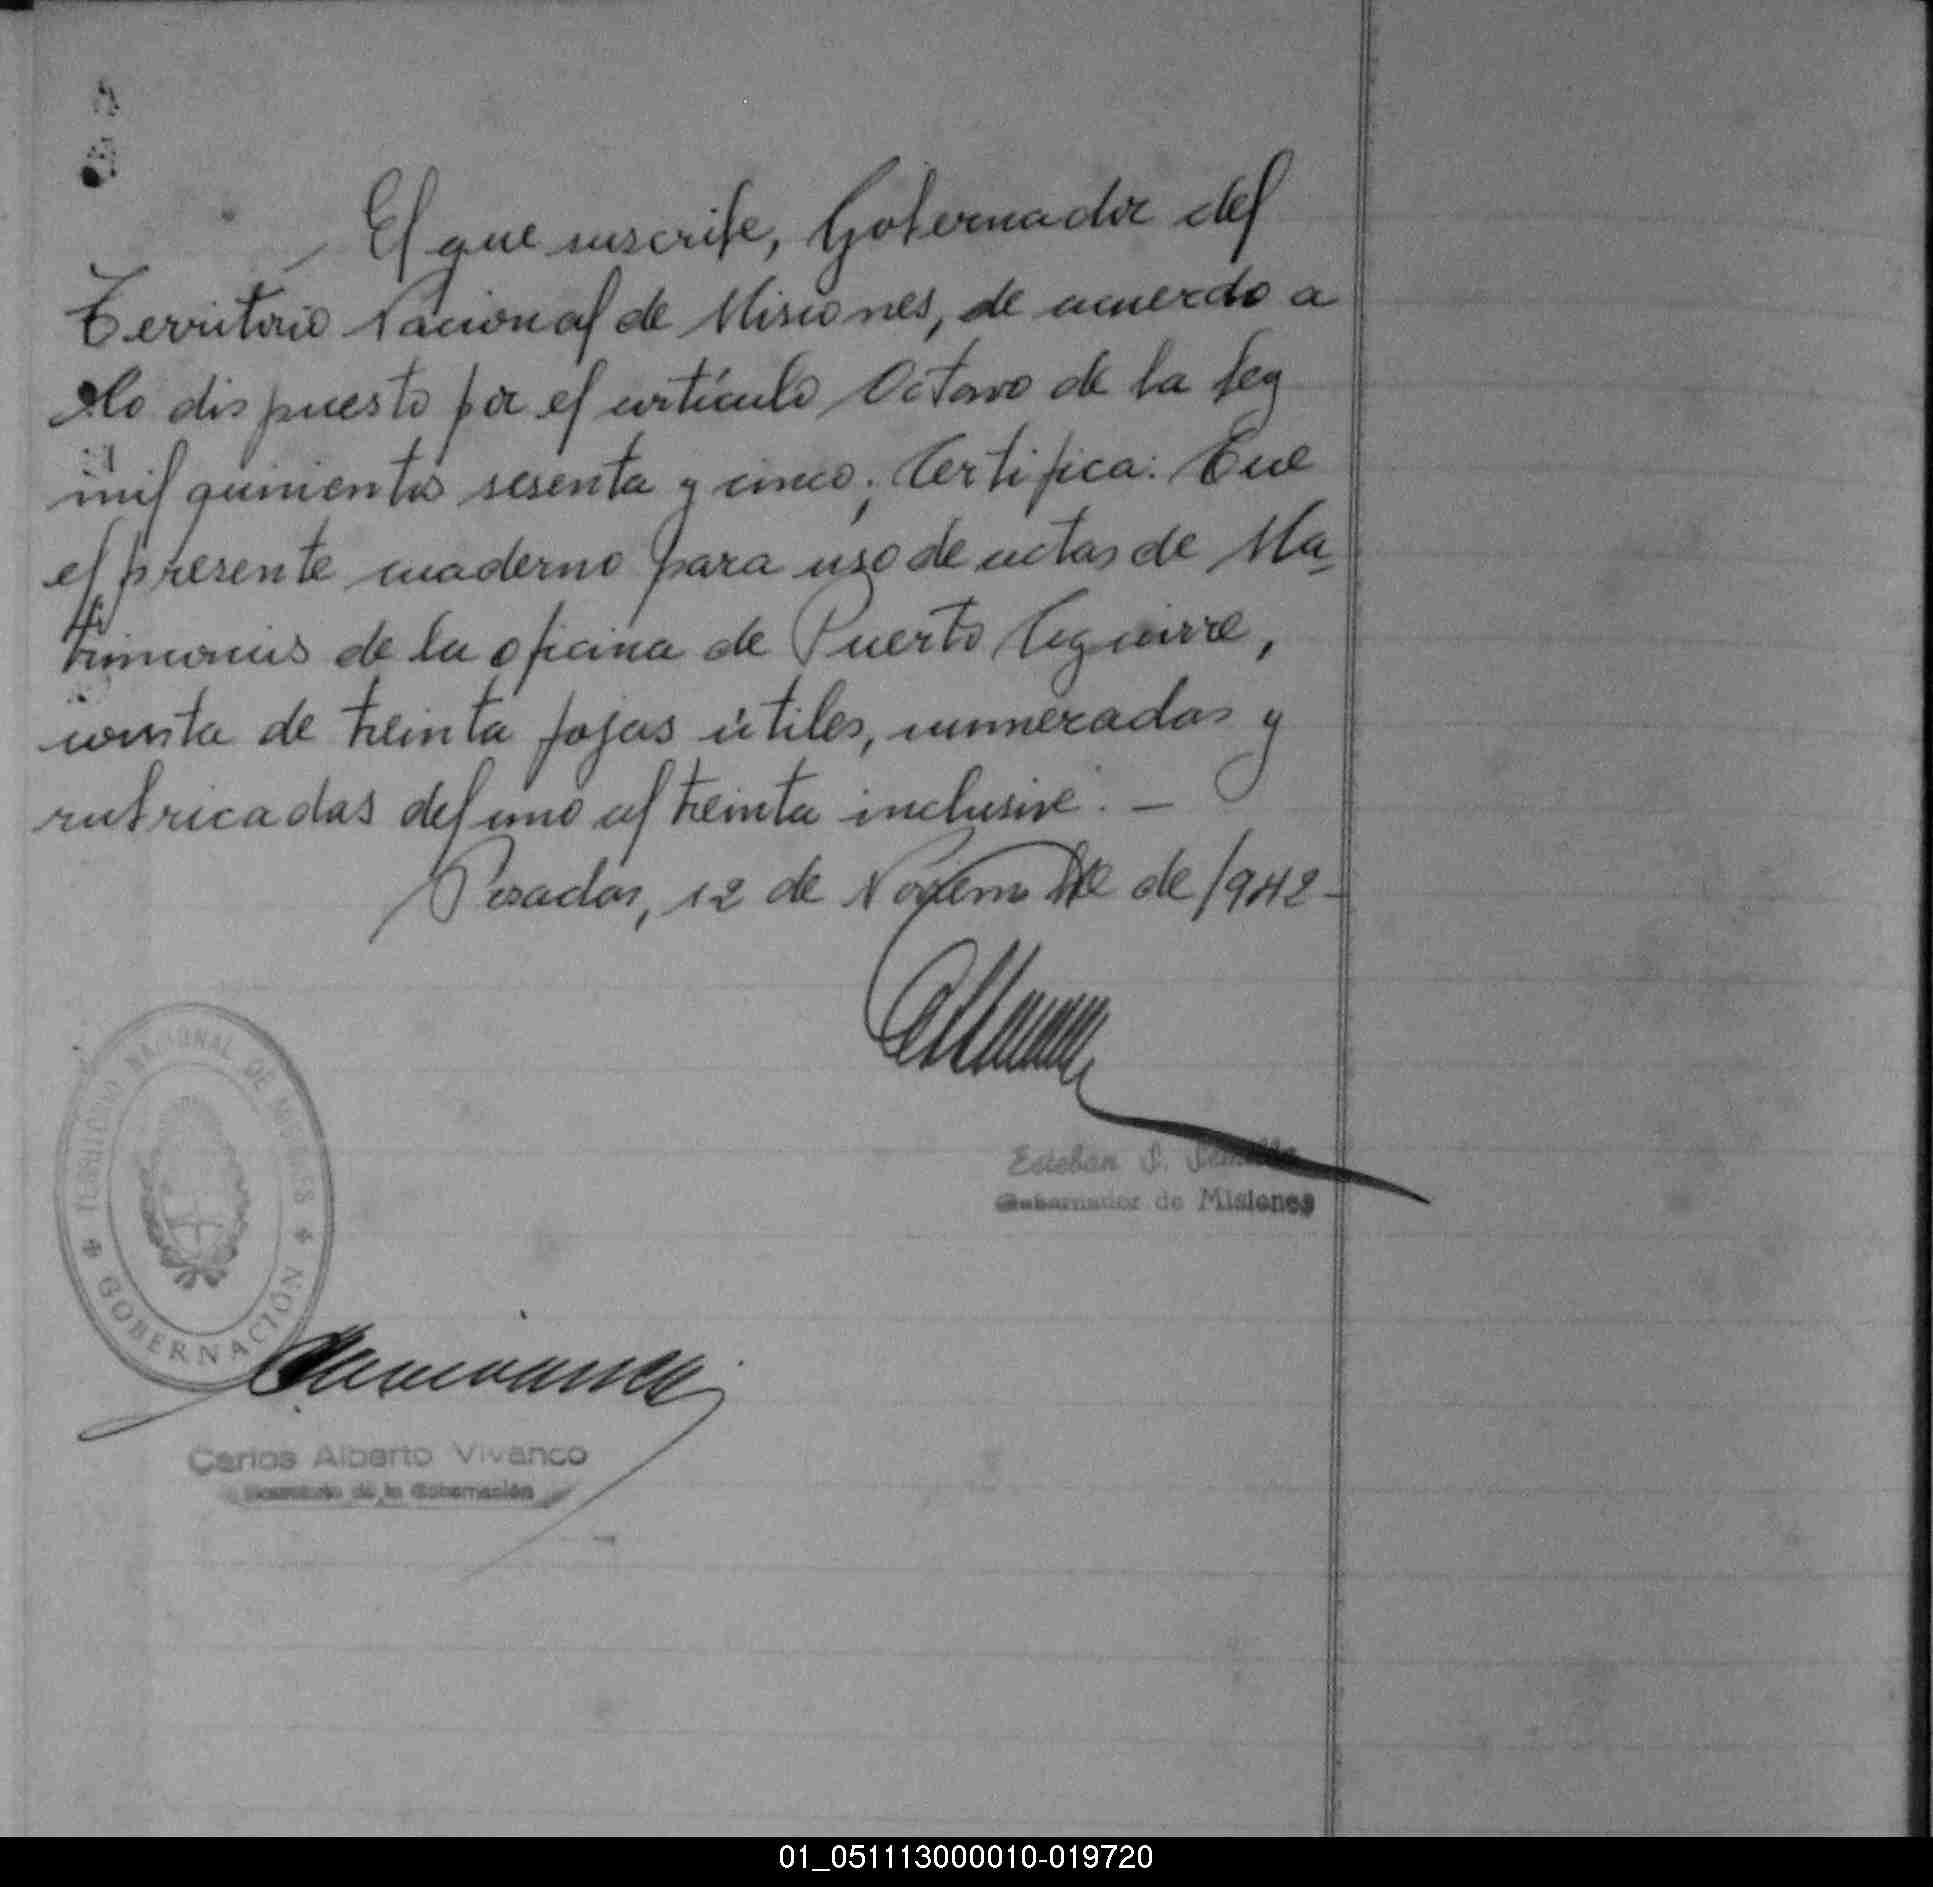 El que suscribe, Gobernador del
Territorio Nacional de Misiones, de acuerdo a
lo dispuesto por el artículo Octavo de la Ley
mil quinientos sesenta y cinco; Certifica: Que
el presente cuaderno para uso de actas de Ma-
trimonios de la oficina de Puerto Aguirre,
consta de treinta fojas útiles, numeradas y
rubricadas del uno al treinta inclusive. —
Posadas, 12 de Noviembre de 1942-
TERRITORIO NACIONAL DE MISIONES
GOBERNACIÓN
Esteban
Gobernador de Misiones
Carlos Alberto Vivanco
Secretario de la Gobernación
01_051113000010-019720